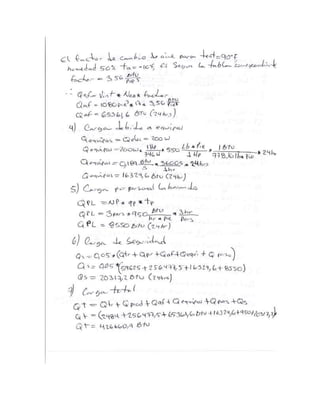 El factor de cambio de aire para Text=90°F
humedad 50% Ta= -10°F es Segun la tabla correspondiente
factor = 3,56 BTU/Pie³
∴ Qaf = Vint * Nca * factor
Qaf = 1080 pie³ * * 3,56 BTU/Pie³
Qaf = 65361,6 BTU (24hrs)
4) Carga debido a equipos
Qequipos = Qelec = 200 W
Qequipos = 200W * 1Hp/746W * 550 Lb*Pie/1Hp * 1BTU/778,16 Lb*Pie * 24hr
Qequipos = 0,189 BTU/s * 3600s/1hr * 24hrs
Qequipos = 16329,6 BTU (24h)
5) Carga por personal laborando
QPL = NP * qp * tp
QPL = 3pers * 950 BTU/hr*Pers * 3hr
QPL = 8550 BTU (24hr)
6) Carga de Seguridad
Qs = 0,05 * (Qtr + Qpr + Qaf + Qequi + Qpers)
Qs = 0,05 * ( + 256477,5 + 16329,6 + 8550)
Qs = 20317,2 BTU (24hr)
7) Carga total
QT = Qtr + Qprod + Qaf + Qequipos + Qpers + Qs
Qt = ( + 256477,5 + 65361,6 BTU + 16329,6 + + )
Qt = 426660,4 BTU